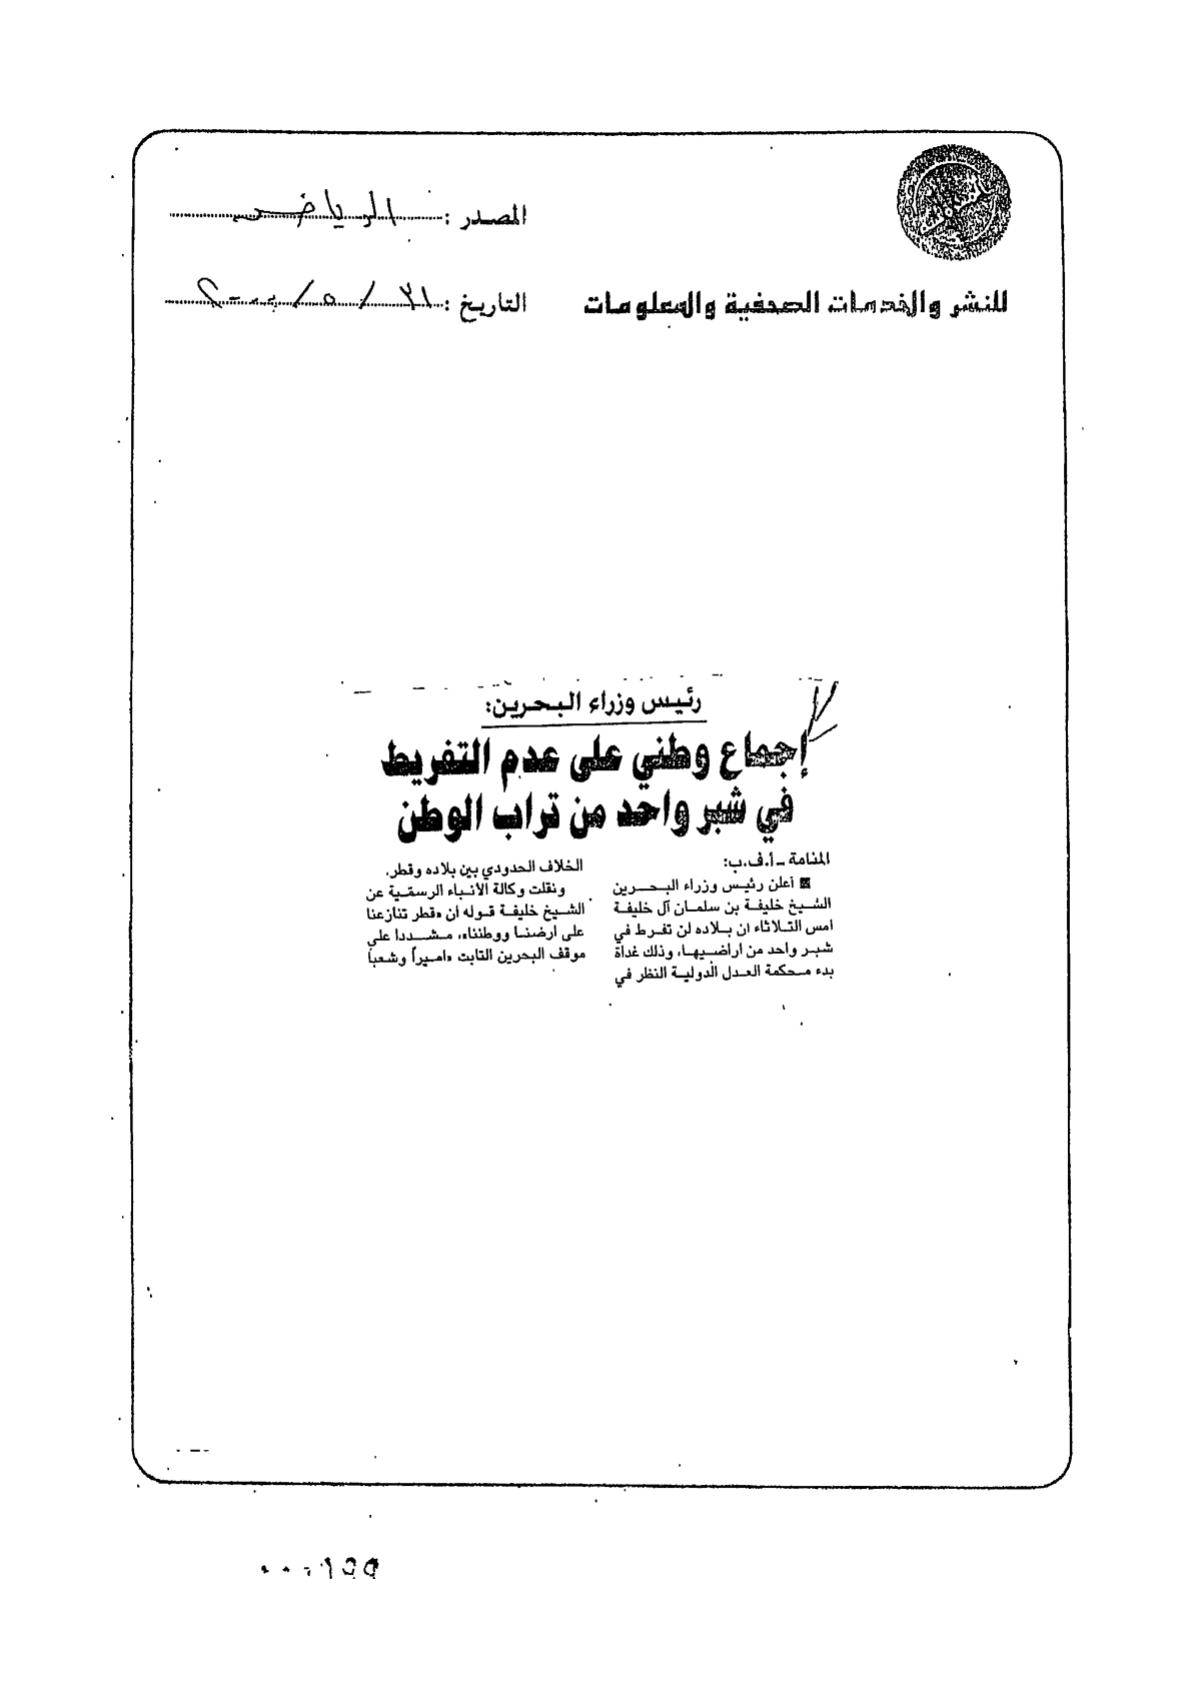 المصدر : الرياض
للنشر والخدمات الصحفية والمعلومات
التاريخ : ٣١ / ٥ / ٢٠٠٠
رئيس وزراء البحرين:
إجماع وطني على عدم التفريط
في شبر واحد من تراب الوطن
المنامة ـ أ.ف.ب:
أعلن رئيس وزراء البحرين
الشيخ خليفة بن سلمان آل خليفة
امس الثلاثاء ان بلاده لن تفرط في
شبر واحد من اراضيها، وذلك غداة
بدء محكمة العدل الدولية النظر في
الخلاف الحدودي بين بلاده وقطر.
ونقلت وكالة الأنباء الرسمية عن
الشيخ خليفة قوله ان «قطر تنازعنا
على أرضنا ووطننا»، مشددا على
موقف البحرين الثابت «اميراً وشعبا